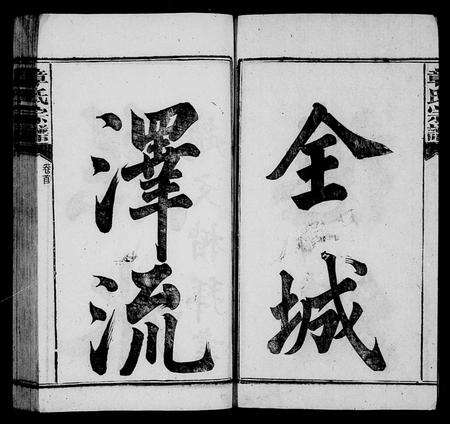 全城
澤流
章氏宗譜
章氏宗譜
卷首